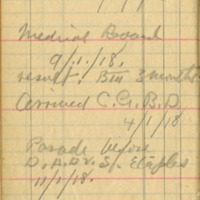 Medical Board
9/1/18.
result. BIII 3 months
Arrived C.G.B.D
4/1/18
Parade before
D.A.D.V.S. Etaples
11/1/18.